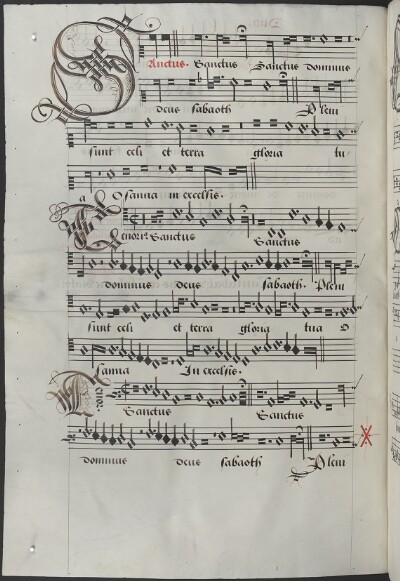 SAnctus. Sanctus Sanctus dominus
deus sabaoth Pleni
sunt celi et terra gloria tu
a Osanna in excelsis.
Tenor Sanctus Sanctus
dominus deus sabaoth. Pleni
sunt celi et terra gloria tua O
sanna In excelsis.
Sanctus Sanctus
dominus deus sabaoth Pleni